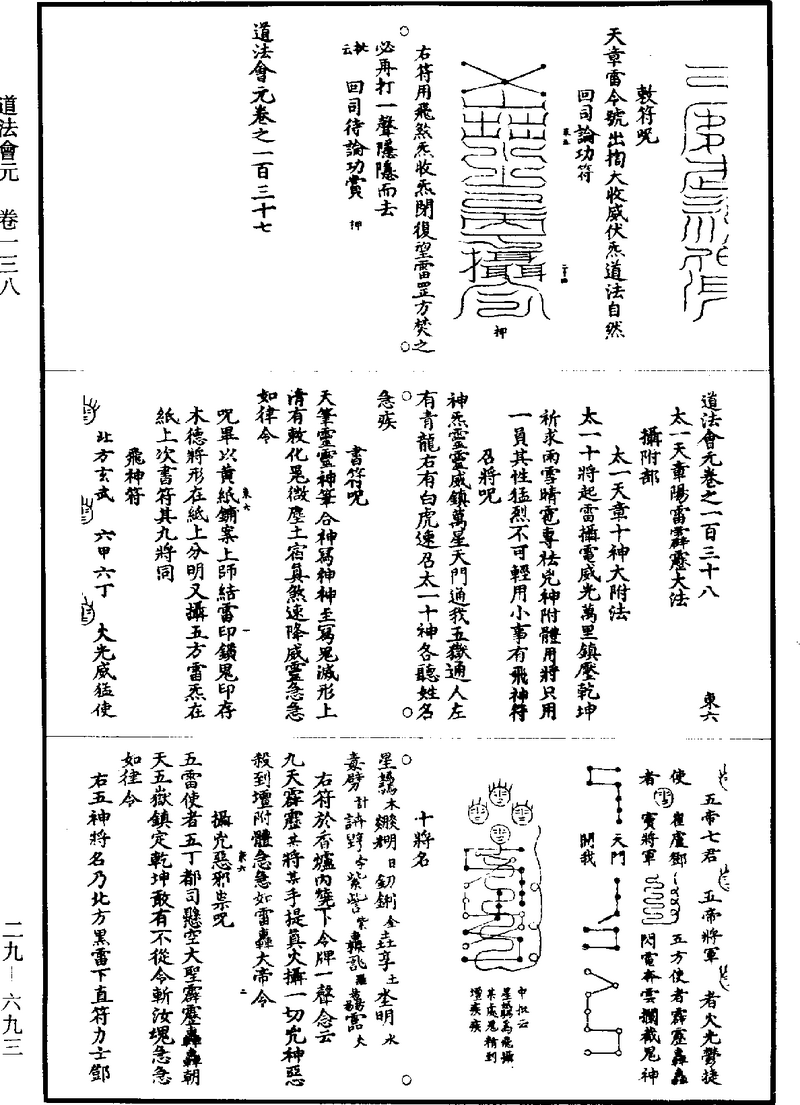 道法會元 卷一三八
二九—六九三
敕符呪
天章雷令號出掏大收威伏炁道法自然
回司論功符
東五
二十四
押
右符用飛煞炁收炁閉復望雷罡方焚之
必再打一聲隱隱而去
批云 回司待論功賞 押
道法會元卷之一百三十七
道法會元卷之一百三十八 東六
太一天章陽雷霹靂大法
攝附部
太一天章十神大附法
太一十將起雷攝電威光萬里鎮壓乾坤
祈求雨雪晴電專祛兇神附體用將只用
一員其性猛烈不可輕用小事有飛神符
召將呪
神炁靈靈威鎮萬星天門通我五嶽通人左
有青龍右有白虎速召太一十神各聽姓名
急疾
書符呪
天筆靈靈神筆合神寫神神至寫鬼滅形上
清有敕化鬼微塵土宿真煞速降威靈急急
如律令
呪畢以黃紙鋪案上師結雷印鎖鬼印存
東六
一
木德將形在紙上分明又攝五方雷炁在
紙上次書符其九將同
飛神符
北方玄武 六甲六丁 火光威猛使
五帝七君 五帝將軍 者火光鬱捷
使 崔盧鄧 五方使者霹靂轟轟
者 竇將軍 閃電奔雲攔截鬼神
天門
開我
中批云
某處鬼精到
壇疾疾
十將名
右符於香爐內燒下令牌一聲念云
九天霹靂某將某手提真火攝一切兇神惡
殺到壇附體急急如雷轟大帝令
東六
二
攝兇惡邪祟呪
五雷使者五丁都司懸空大聖霹靂轟轟朝
天五嶽鎮定乾坤敢有不從令斬汝塊急急
如律令
右五神將名乃北方黑雷下直符力士鄧